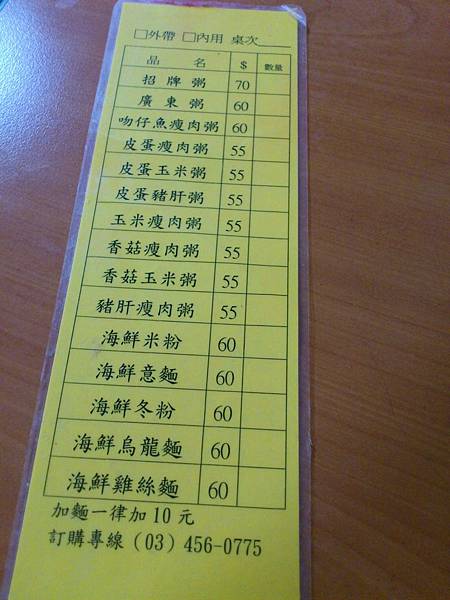 □外帶 □內用 桌次____
品 名 $ 數量
招牌粥 70
廣東粥 60
吻仔魚瘦肉粥 60
皮蛋瘦肉粥 55
皮蛋玉米粥 55
皮蛋豬肝粥 55
玉米瘦肉粥 55
香菇瘦肉粥 55
香菇玉米粥 55
豬肝瘦肉粥 55
海鮮米粉 60
海鮮意麵 60
海鮮冬粉 60
海鮮烏龍麵 60
海鮮雞絲麵 60
加麵一律加10元
訂購專線（03）456-0775